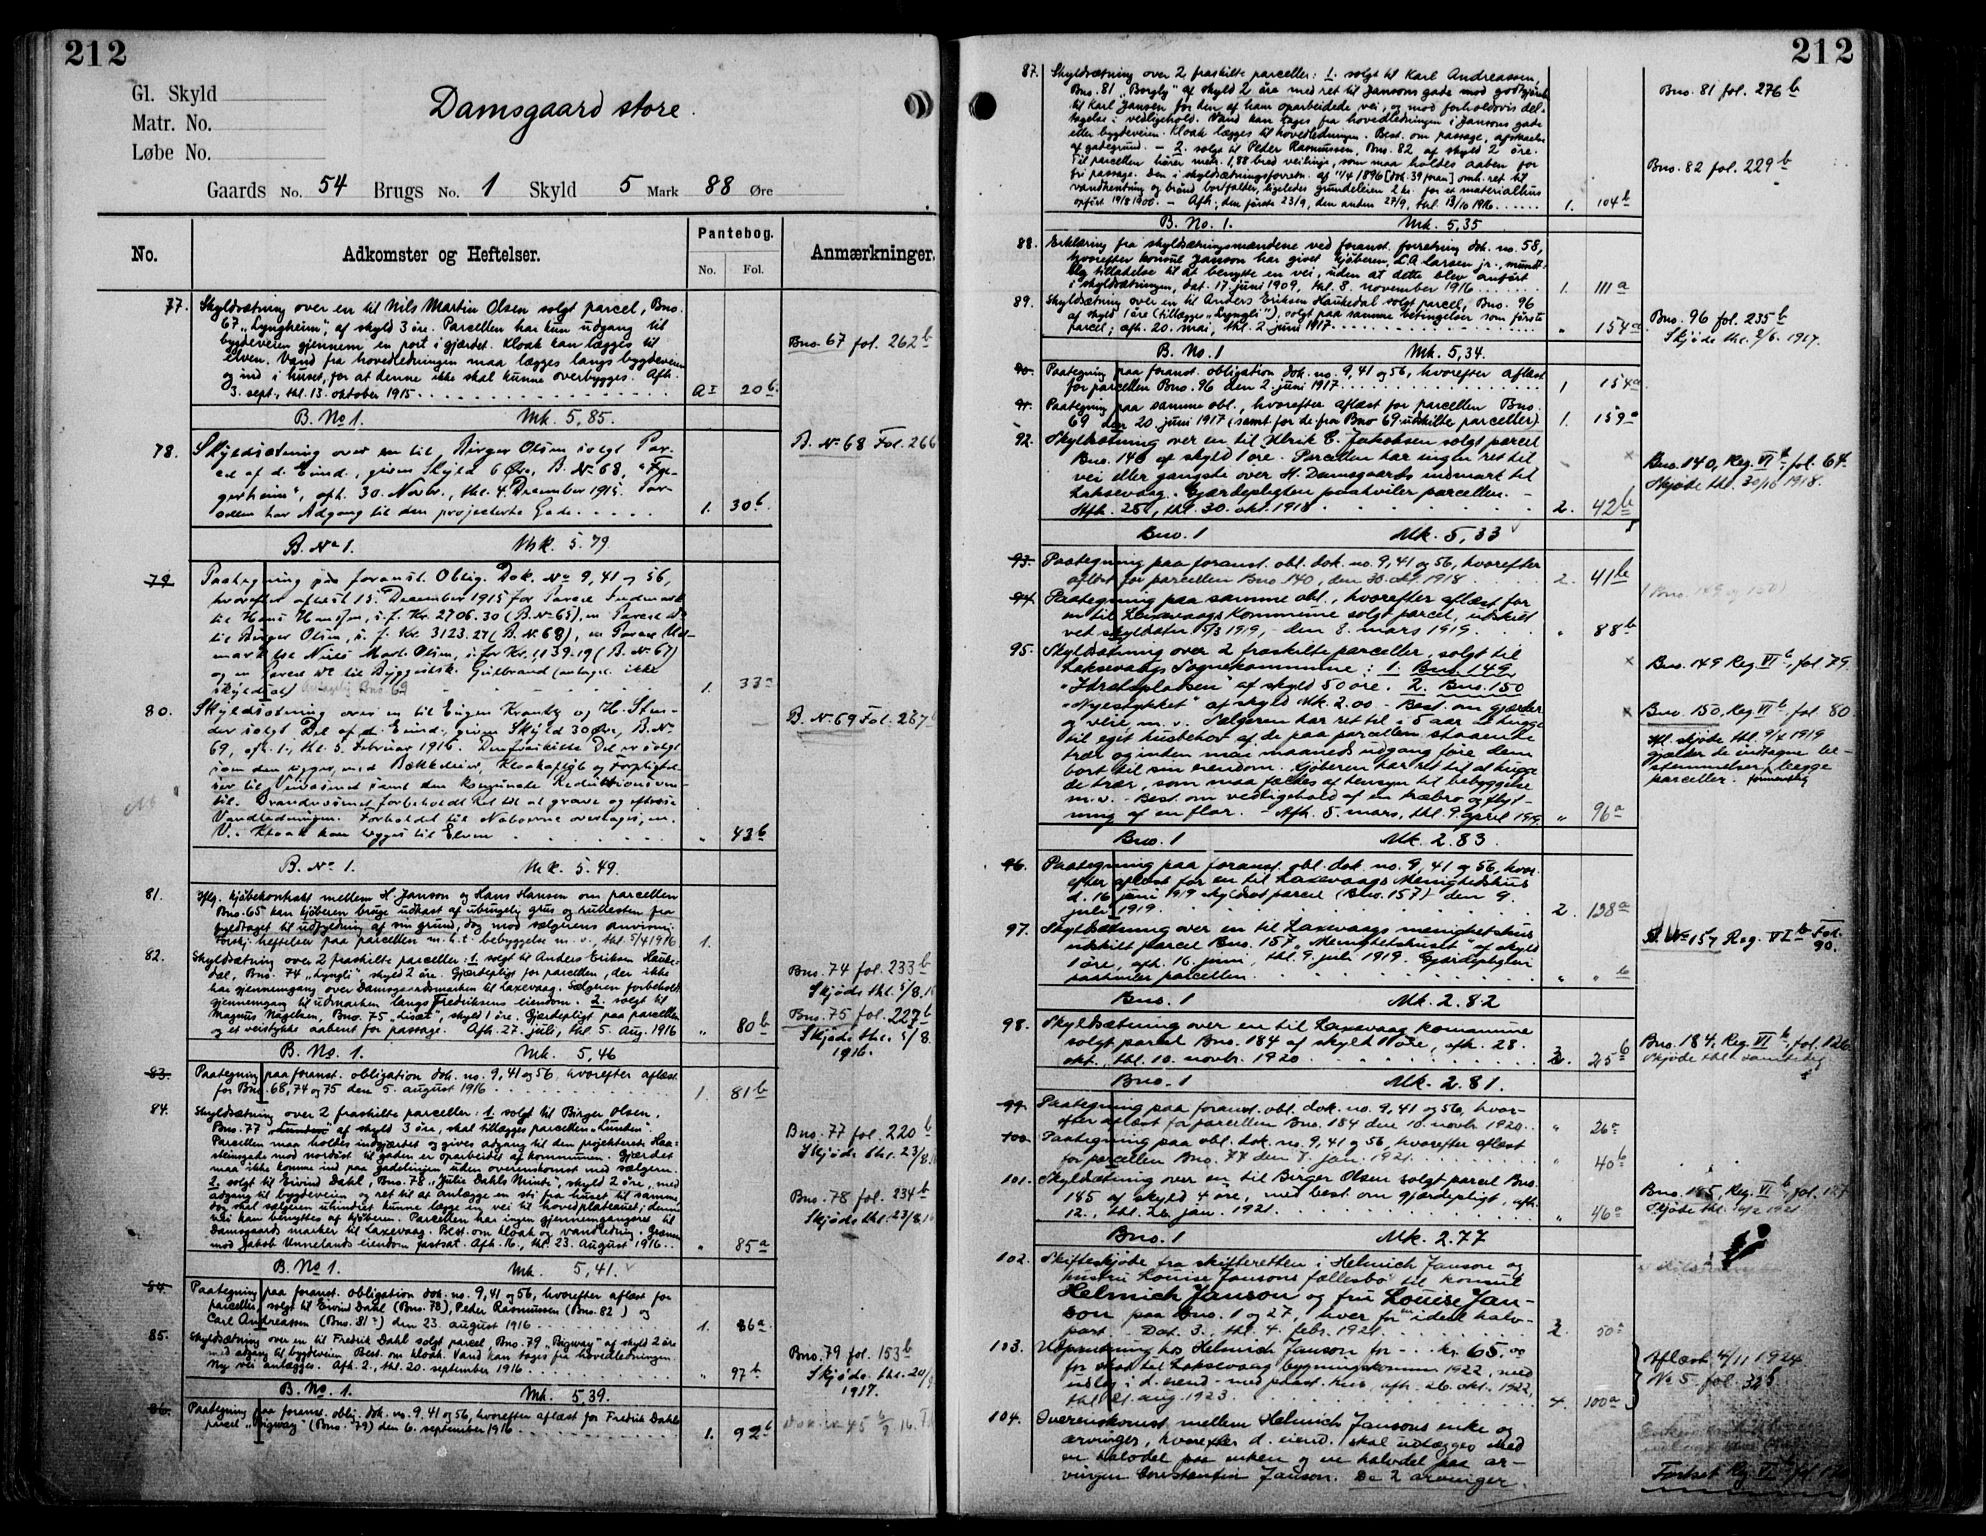 212
Gl. Skyld
Matr. No.
Løbe No.
Damsgaard store.
Gaards No. 54 Brugs No. 1 Skyld 5 Mark 88 Øre
No. Adkomster og Heftelser. Pantebog. No. Fol. Anmærkninger.
77. Skyldsætning over en til Nils Martin Olsen solgt parcel, Bno.
67 „Lyngheim" af skyld 3 øre. Parcellen har kun udgang til
bygdeveien gjennem en port i gjærdet. Kloak kan lægges til
elven. Vand fra hovedledningen maa lægges langs bygdeveien
og ind i huset, for at denne ikke skal kunne overbygges. Afh.
3. sept., thl. 13. oktober 1915. A I 20 b.
Bno. 67 fol. 262 b
B. No 1. Mk. 5,85.
78. Skyldsætning over en til Birger Olsen solgt Par-
cel af d. Eiend., given Skyld 6 Øre, B. No 68,
afh. 30. Novbr., thl. 4. December 1915. Par-
cellen har Adgang til den projekterte Gade. 1. 30 b.
B. No 68 Fol. 266
B. No 1. Mk. 5.79
79. Paategning paa foranst. Oblig. Dok. No 9, 41 og 56,
hvorefter aflæst 15. December 1915 for Parcel
til Hans Hansen, i.f. Kr. 2706.30 (B. No 65), en Parcel
til Birger Olsen, i.f. Kr. 3123.27 (B. No 68), en Parcel
til Niels Mart. Olsen, (B. No 67)
og en Parcel
skyldsat) Antagelig Bno. 69 1. 33 a
80. Skyldsætning over en til Eugen og H.
solgt Del af d. Eiend., given Skyld 30 Øre, B. No
69, afh. 1., thl. 5. Februar 1916. Den fraskilte Del er solgt
som den ligger, med Kloakafløb og Forpligtel-
ser til
til. Brandvæsnet forbeholdt Ret til at grave og eftersee
Vandledningen. Forholdet til Naboerne overtages, m.
V. Kloak kan lægges til Elven „ 43 b
B. No 69 Fol. 267
B. No 1. Mk. 5.49.
81. Iflg. kjøbekontrakt mellem H. Janson og Hans Hansen om parcellen
Bno. 65 kan kjøberen bruge udkast af ubrugelig grus og rullesten fra
til udfyldning af sin grund, dog mod sælgerens anvisning.
Forskj. heftelser paa parcellen m.h.t. bebyggelse m.v., thl. 5/4 1916 1.
82. Skyldsætning over 2 fraskilte parceller: 1. solgt til Anders Eriksen Hauke-
dal, Bno. 74 „Lyngli" skyld 2 øre. Gjærdepligt for parcellen, der ikke
har gjennemgang over Damsgaardsmarken til Laxevaag. Sælgeren forbeholdt
gjennemgang til udmarken langs Fredriksens eiendom. 2. solgt til
Magnus Nagelsen, Bno. 75 „Lisæt", skyld 1 øre. Gjærdepligt paa parcellen
og et veistykke aabent for passage. Afh. 27. juli, thl. 5. Aug. 1916 „ 80 b
Bno. 74 fol. 233 b
Skjøde thl. 5/8. 16
Bno. 75 fol. 227 b
Skjøde thl. 5/8.
1916.
B. No. 1. Mk. 5,46
83. Paategning paa foranst. obligation dok. no. 9, 41 og 56, hvorefter aflæst
for Bno. 68, 74 og 75 den 5. august 1916 1. 81 b
84. Skyldsætning over 2 fraskilte parceller: 1. solgt til Birger Olsen,
Bno. 77 „Lunden" af skyld 3 øre, skal tillægges parcellen „Lunden".
Parcellen maa holdes indgjærdet og gives adgang til den projekterte Haa-
steinsgade mod nordøst til gaden er oparbeidet af kommunen. Gjærdet
maa ikke komme ind paa gadelinjen uden overenskomst med sælgeren.
2. solgt til Eivind Dahl, Bno. 78 „Julie Dahls Minde", skyld 2 øre, med
adgang til bygdeveien og ret til at anlægge en sti fra huset til samme,
dog skal sælgeren uhindret kunne lægge en vei til hovedplateauet; denne
vei kan benyttes af kjøberen. Parcellen har ingen gjennemgangsret til
Damsgaards marker til Laxevaag. Best. om kloak og vandledning. Grænsen
mod Jakob Unnelands eiendom fastsat. Afh. 16., thl. 23. August 1916. „ 85 a
Bno. 77 fol. 220 b
Skjøde thl. 23/8.16
Bno. 78 fol. 234 b
Skjøde thl. 23/8.16
B. No 1. Mk. 5,41.
84. Paategning paa foranst. obligation dok. no. 9, 41 og 56, hvorefter aflæst for
parceller solgt til Eivind Dahl (Bno. 78), Peder Rasmussen (Bno. 82) og
Carl Andreassen (Bno. 81) den 23. august 1916 1. 86 a
85. Skyldsætning over en til Fredrik Dahl solgt parcel, Bno. 79 „Bigway" af skyld 2 øre
med adgang til bygdeveien. Best. om kloak. Vand kan tages fra hovedledningen.
Ny vei anlægges. Afh. 2., thl. 20. september 1916 „ 97 b
Bno. 79 fol. 153 b
Skjøde thl. 20/
1917.
B. No. 1. Mk. 5,39.
86. Paategning paa foranst. oblig. dok. no. 9, 41 og 56, hvorefter aflæst for Fredrik Dahls
parcel „Bigway" (Bno. 79) den 6. september 1916 1. 92 b
212
87. Skyldsætning over 2 fraskilte parceller: 1. solgt til Karl Andreassen,
Bno. 81 „Borgly" af skyld 2 øre med ret til Jansons gade mod godtgjørelse
til Karl Jansen for den af ham oparbeidede vei, og mod forholdsvis del-
tagelse i vedligehold. Vand kan tages fra hovedledningen i Jansons gade
eller bygdeveien. Kloak lægges til hovedledningen. Best. om passage, afstaaelse
af gadegrund. — 2. solgt til Peder Rasmussen, Bno. 82 af skyld 2 øre.
Til parcellen hører mtr. 1,88 bred veilinje, som maa holdes aaben for
fri passage. Den i skyldsætningsforretn. af 11/4 1896 [dok. 39 foran] omh. ret til
vandhentning og brønd bortfalder, ligeledes grundleien 2 kr. for et materialhus
opført 19/8 1900. — Afh., den første 23/9, den anden 27/9, thl. 13/10 1916 1. 104 b
Bno. 81 fol. 276 b
Bno. 82 fol. 229 b
B. No. 1. Mk. 5,35
88. Erklæring fra skyldsætningsmændene ved foranst. forretning dok. no. 58,
hvorefter konsul Janson har givet kjøberen, C.A. Larsen jr., mundt-
lig tilladelse til at benytte en vei, uden at dette blev anført
i skyldsætningen, dat. 17. juni 1909, thl. 8. november 1916 1. 111 a
89. Skyldsætning over en til Anders Eriksen Haukedal solgt parcel, Bno. 96
af skyld 1 øre (tillægges „Lyngli"), solgt paa samme betingelser som første
parcel; afh. 20. mai, thl. 2. juni 1917 „ 154 a
Bno. 96 fol. 235 b
Skjøde thl. 2/6. 1917.
B. No. 1 Mk. 5,34.
90. Paategning paa foranst. obligation dok. no. 9, 41 og 56, hvorefter aflæst
for parcellen Bno. 96 den 2. juni 1917 1 154 a
91. Paategning paa samme obl., hvorefter aflæst for parcellen Bno.
69 den 20. juni 1917 (samt for de fra Bno 69 udskilte parceller) 1. 159 a
92. Skyldsætning over en til Ulrik E. Jakobsen solgt parcel
Bno. 140 af skyld 1 øre. Parcellen har ingen ret til
vei eller gangsti over H. Damsgaards indmark til
Laksevaag. Gjærdepligten paahviler parcellen. —
Afh. 25., thl. 30. okt. 1918 2. 42 b
Bno. 140, Reg. VI b, fol. 64.
Skjøde thl. 30/10 1918.
Bno. 1 Mk. 5,33
93. Paategning paa foranst. obl. dok. no. 9, 41 og 56, hvorefter
aflæst for parcellen Bno. 140, den 30. okt. 1918 2. 41 b
(Bno. 149 og 150)
94. Paategning paa samme obl., hvorefter aflæst for
en til Laxevaags Kommune solgt parcel, udskilt
ved skyldsætn. 5/3 1919, den 8. mars 1919. „ 88 b
95. Skyldsætning over 2 fraskilte parceller, solgt til
Laksevaags Sognekommune: 1. Bno. 149
„Idrætspladsen" af skyld 50 øre. 2. Bno. 150
„Myrstykket" af skyld Mk. 2.00. - Best. om gjærder
og veie m. v. Sælgeren har ret til i 5 aar at hugge
til eget husbehov af de paa parcellen staaende
trær og inden mai maaneds udgang føre dem
bort til sin eiendom. Kjøberen har ret til at hugge
de trær, som maa fældes af hensyn til bebyggelse
m.v. - Best. om vedligehold af en træbro og flyt-
ning af en flor. - Afh. 5. mars, thl. 9. april 1919 „ 96 a
Bno. 149 Reg. VI b, fol 79.
Bno. 150, Reg. VI b, fol. 80.
Ifl. skjøde thl. 9/4 1919
gjælder de indtagne be-
stemmelser begge
parceller.
Bno. 1 Mk. 2.83.
96. Paategning paa foranst. obl. dok. no. 9, 41 og 56, hvor-
efter aflæst for en til Laxevaags Menighedshus
d. 16 juni 1919 skyldsat parcel (Bno. 157) den 9.
juli 1919. 2. 138 a
97. Skyldsætning over en til Laxevaags menighetshus
udskilt parcel Bno. 157 „Menighetshuset" af skyld
1 øre, afh. 16. juni, thl. 9. juli 1919. Gjærdepligten
paahviler parcellen. „ „ b
B. No 157 Reg. VI b Fol. 90.
Bno. 1 Mk. 2.82
98. Skyldsætning over en til Laxevaag kommune
solgt parcel Bno. 184 af skyld 1 øre, afh. 28.
okt., thl. 10. novbr. 1920 3. 25 b
Bno. 184, Reg. VI b, fol. 126.
Skjøde thl. samtidig
Bno. 1 Mk. 2.81.
99. Paategning paa foranst. obl. dok. no. 9, 41 og 56, hvor-
efter aflæst for parcellen Bno. 184 den 10. novbr. 1920. „ 26 a
100. Paategning paa obl. dok. no. 9, 41 og 56, hvorefter aflæst
for parcellen Bno. 77 den 7. jan. 1921. „ 40 b
101. Skyldsætning over en til Birger Olsen solgt parcel Bno.
185 af skyld 4 øre, med best. om gjærdepligt, afh.
12., thl. 26. jan. 1921. „ 46 a
Bno. 185, Reg. VI b, fol. 127
Bno. 1 Mk. 2.77
102. Skifteskjøde fra skifteretten i Helmich Janson og
hustru Louise Jansons fællesbo til konsul
Helmich Janson og fru Louise Jan-
son paa Bno. 1 og 27, hver for en ideel halv-
part. Dat. 3., thl. 4. febr. 1921 3. 50 a
103. Udpantning hos Helmich Janson for kr. 65.00
for skat til Laksevaag bygningskommune 1922, med
udlæg i d. eiend. med paast. hus, afh. 26. okt. 1922,
thl. 21. aug. 1923. 4. 100 a
Aflæst 4/11 1924
No 5 fol. 325
104. Overenskomst mellem Helmich Jansons enke og
arvinger, hvorefter d. eiend. skal udlægges med
en halvdel paa enken og en halvdel paa ar-
vingen Constantin Janson. De 2 arvinger.
Fortset Reg. VI b, fol 1